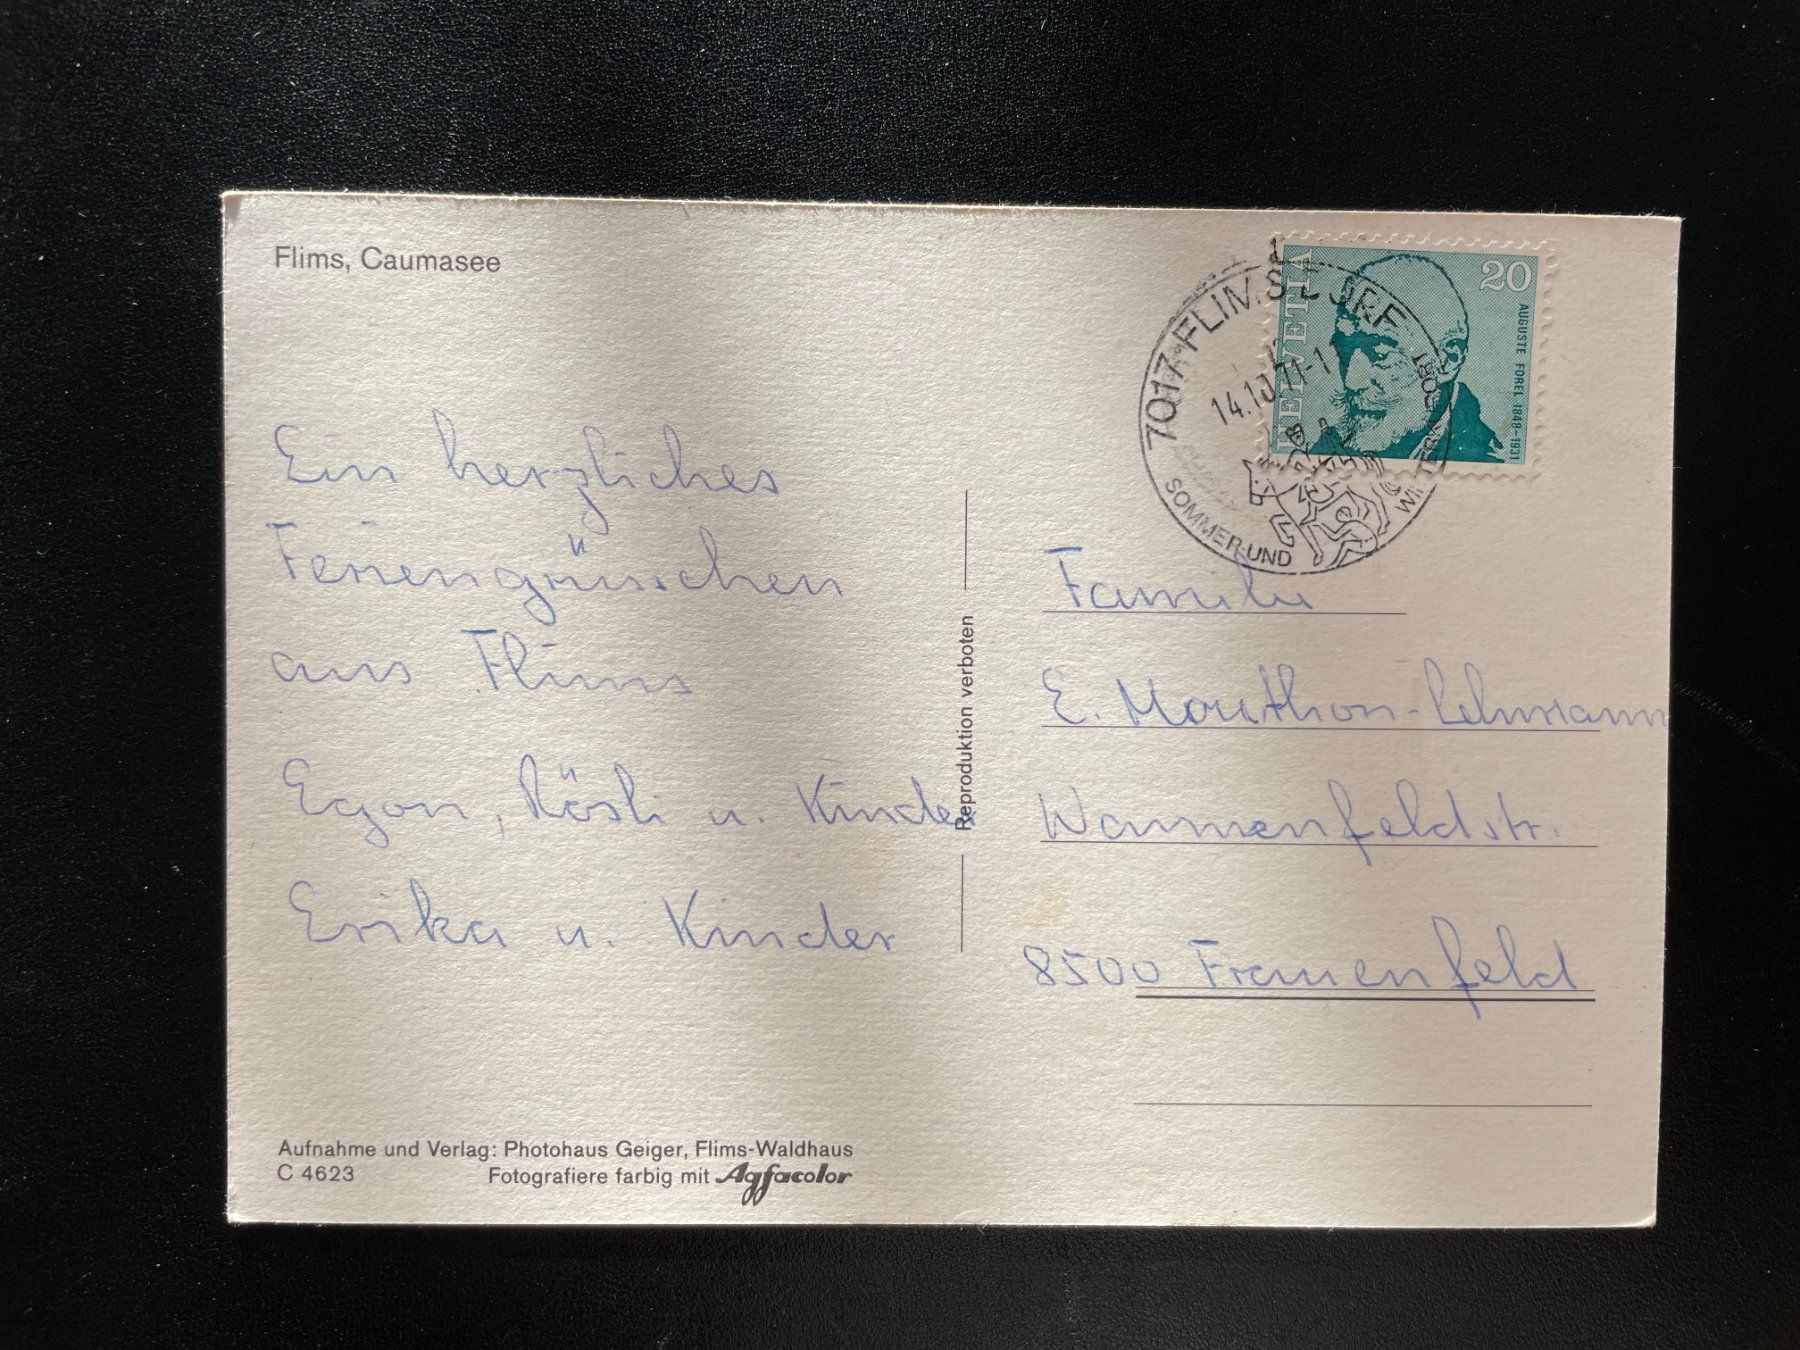 Flims, Caumasee
Ein herzliches
Feriengrüsschen
aus Flims
Egon, Rösli u. Kinder
Erika u. Kinder
Aufnahme und Verlag: Photohaus Geiger, Flims-Waldhaus
C 4623 Fotografiere farbig mit Agfacolor
Reproduktion verboten
7017 FLIMS DORF
14.10.71-1
SOMMER- UND
HELVETIA
20
AUGUSTE FOREL 1848-1931
Familie
E. Mouthon-Lehmann
Wannenfeldstr.
8500 Frauenfeld